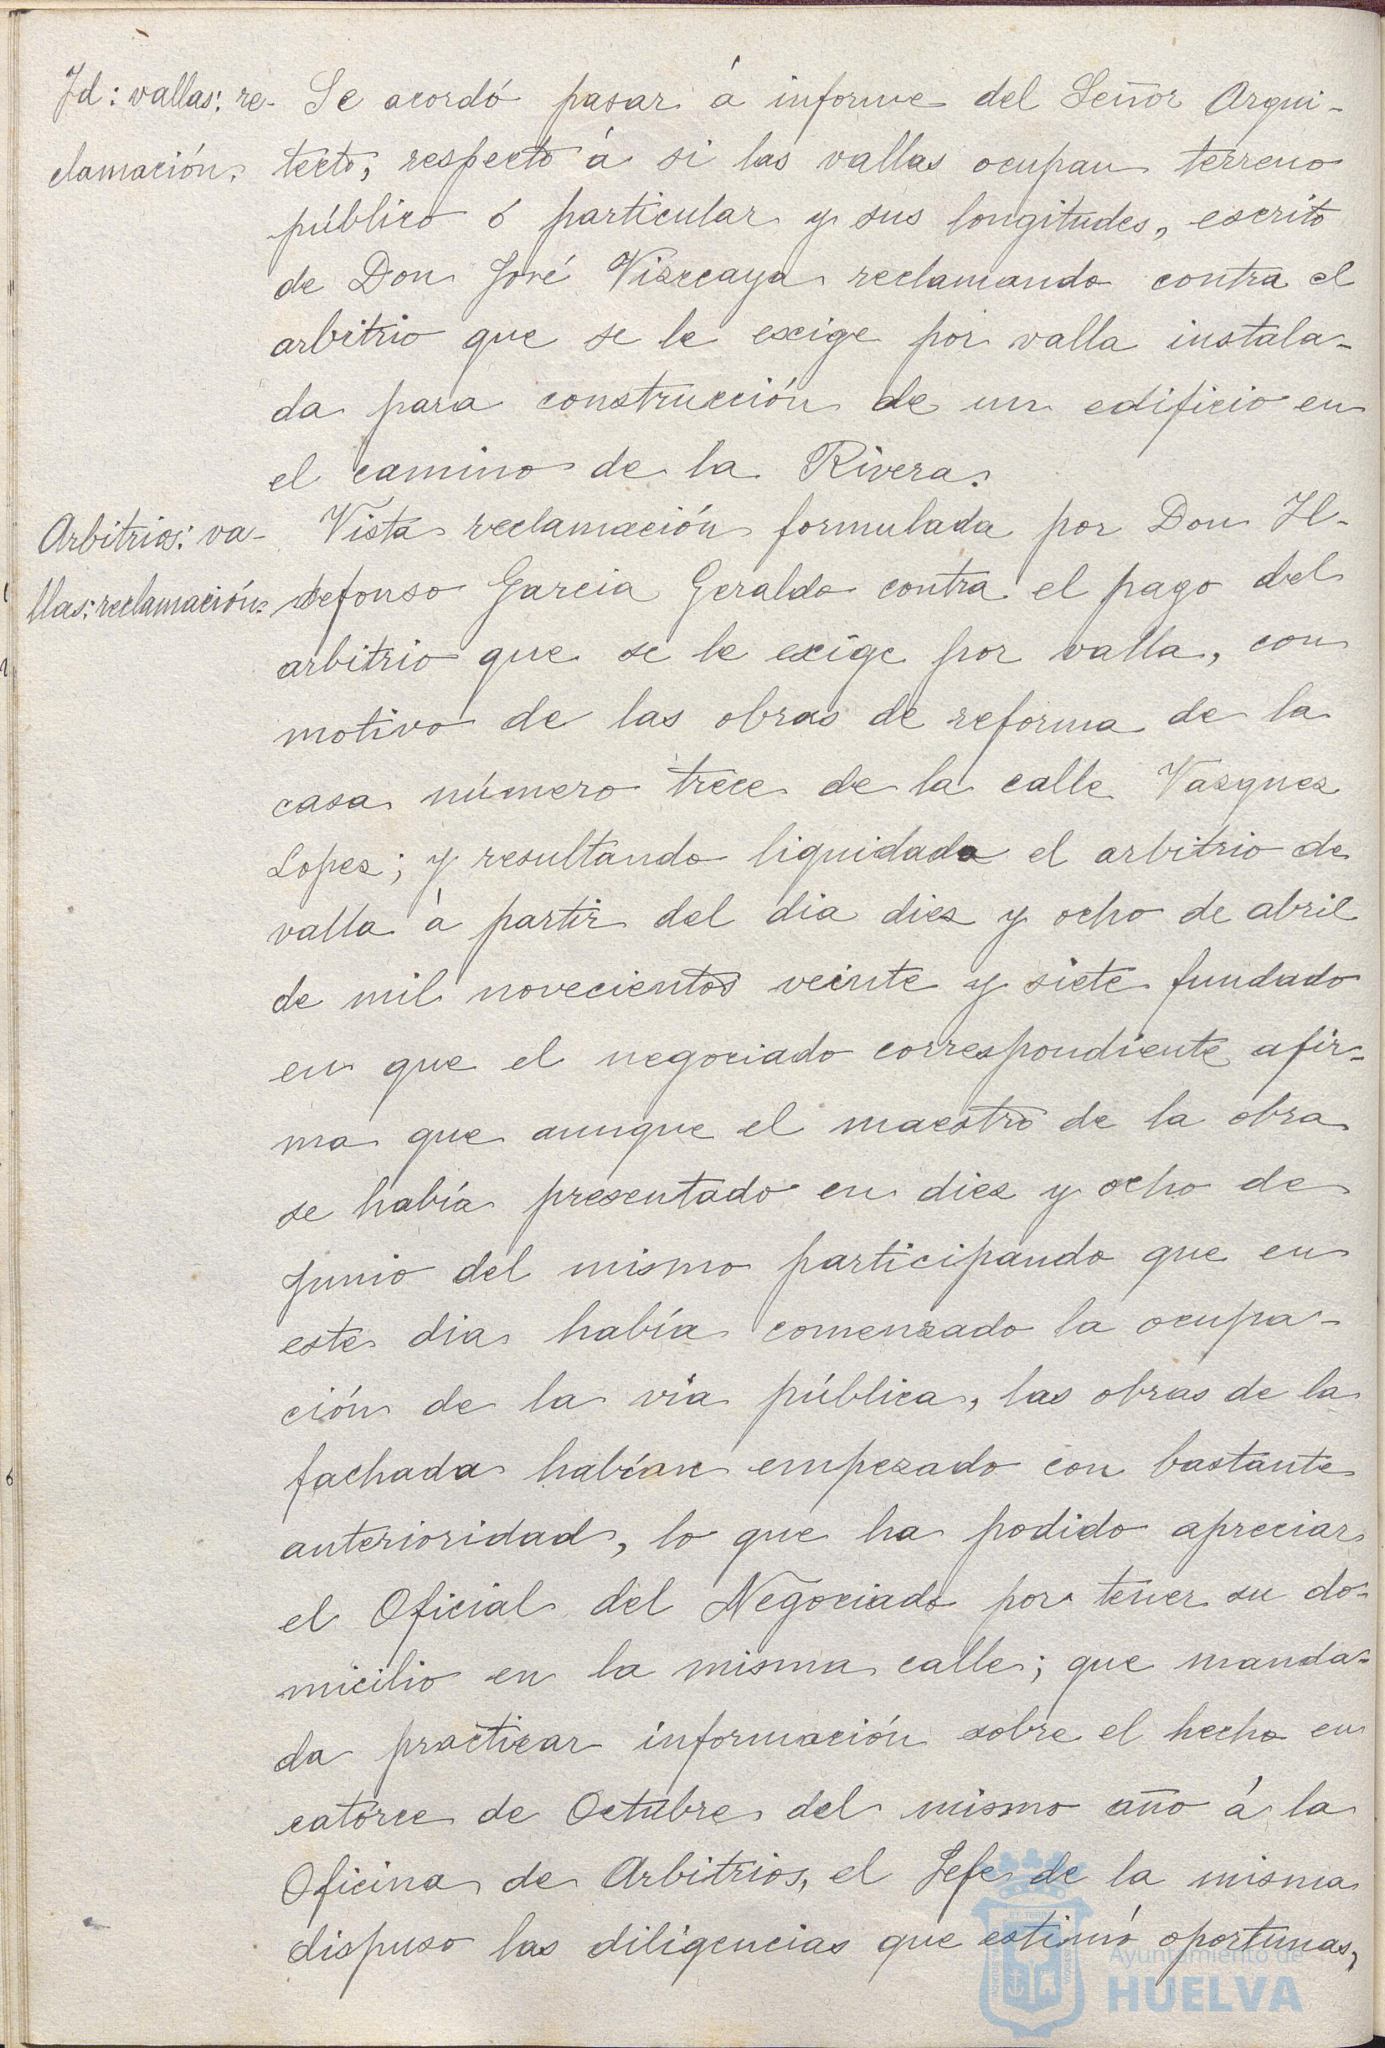 Id: vallas: re-
clamación.
Se acordó pasar á informe del Señor Arqui-
tecto, respecto á si las vallas ocupan terreno
público ó particular y sus longitudes, escrito
de Don José Vizcaya reclamando contra el
arbitrio que se le exige por valla instala-
da para construcción de un edificio en
el camino de la Rivera.
Arbitrios: va-
llas: reclamación.
Vista reclamación formulada por Don Il-
defonso Garcia Geraldo contra el pago del
arbitrio que se le exige por valla, con
motivo de las obras de reforma de la
casa número trece de la calle Vazquez
Lopez; y resultando liquidado el arbitrio de
valla á partir del dia diez y ocho de abril
de mil novecientos veinte y siete fundado
en que el negociado correspondiente afir-
ma que aunque el maestro de la obra
se había presentado en diez y ocho de
Junio del mismo participando que en
este dia había comenzado la ocupa-
ción de la via pública, las obras de la
fachada habían empezado con bastante
anterioridad, lo que ha podido apreciar
el Oficial del Negociado por tener su do-
micilio en la misma calle; que manda-
da practicar información sobre el hecho en
catorce de Octubre del mismo año á la
Oficina de Arbitrios, el Jefe de la misma
dispuso las diligencias que estimó oportunas,
Ayuntamiento de
HUELVA